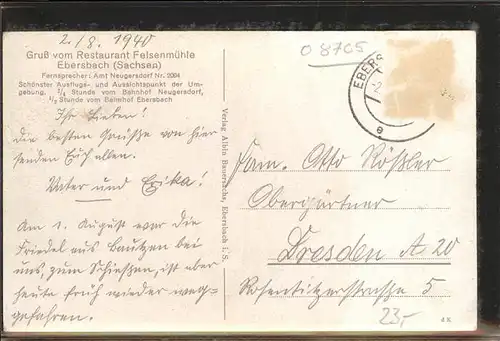 2./8. 1940
Gruß vom Restaurant Felsenmühle
Ebersbach (Sachsen)
Fernsprecher: Amt Neugersdorf Nr. 2004
Schönster Ausflugs- und Aussichtspunkt der Um-
gebung, 3/4 Stunde vom Bahnhof Neugersdorf,
1/2 Stunde vom Bahnhof Ebersbach
Ihr Lieben!
die besten Grüße von hier
senden Euch allen.
Vater und Erika!
Am 1. August war die
Friedel aus Bautzen bei
uns, zum Schießen, ist aber
heute früh wieder weg-
gefahren.
Verlag Albin Buttrich, Ebersbach i. S.
O 8705
EBERS
2
e
Fam. Otto Rößler
Obergärtner
Dresden A 20
Rosentitzerstraße 5
23,-